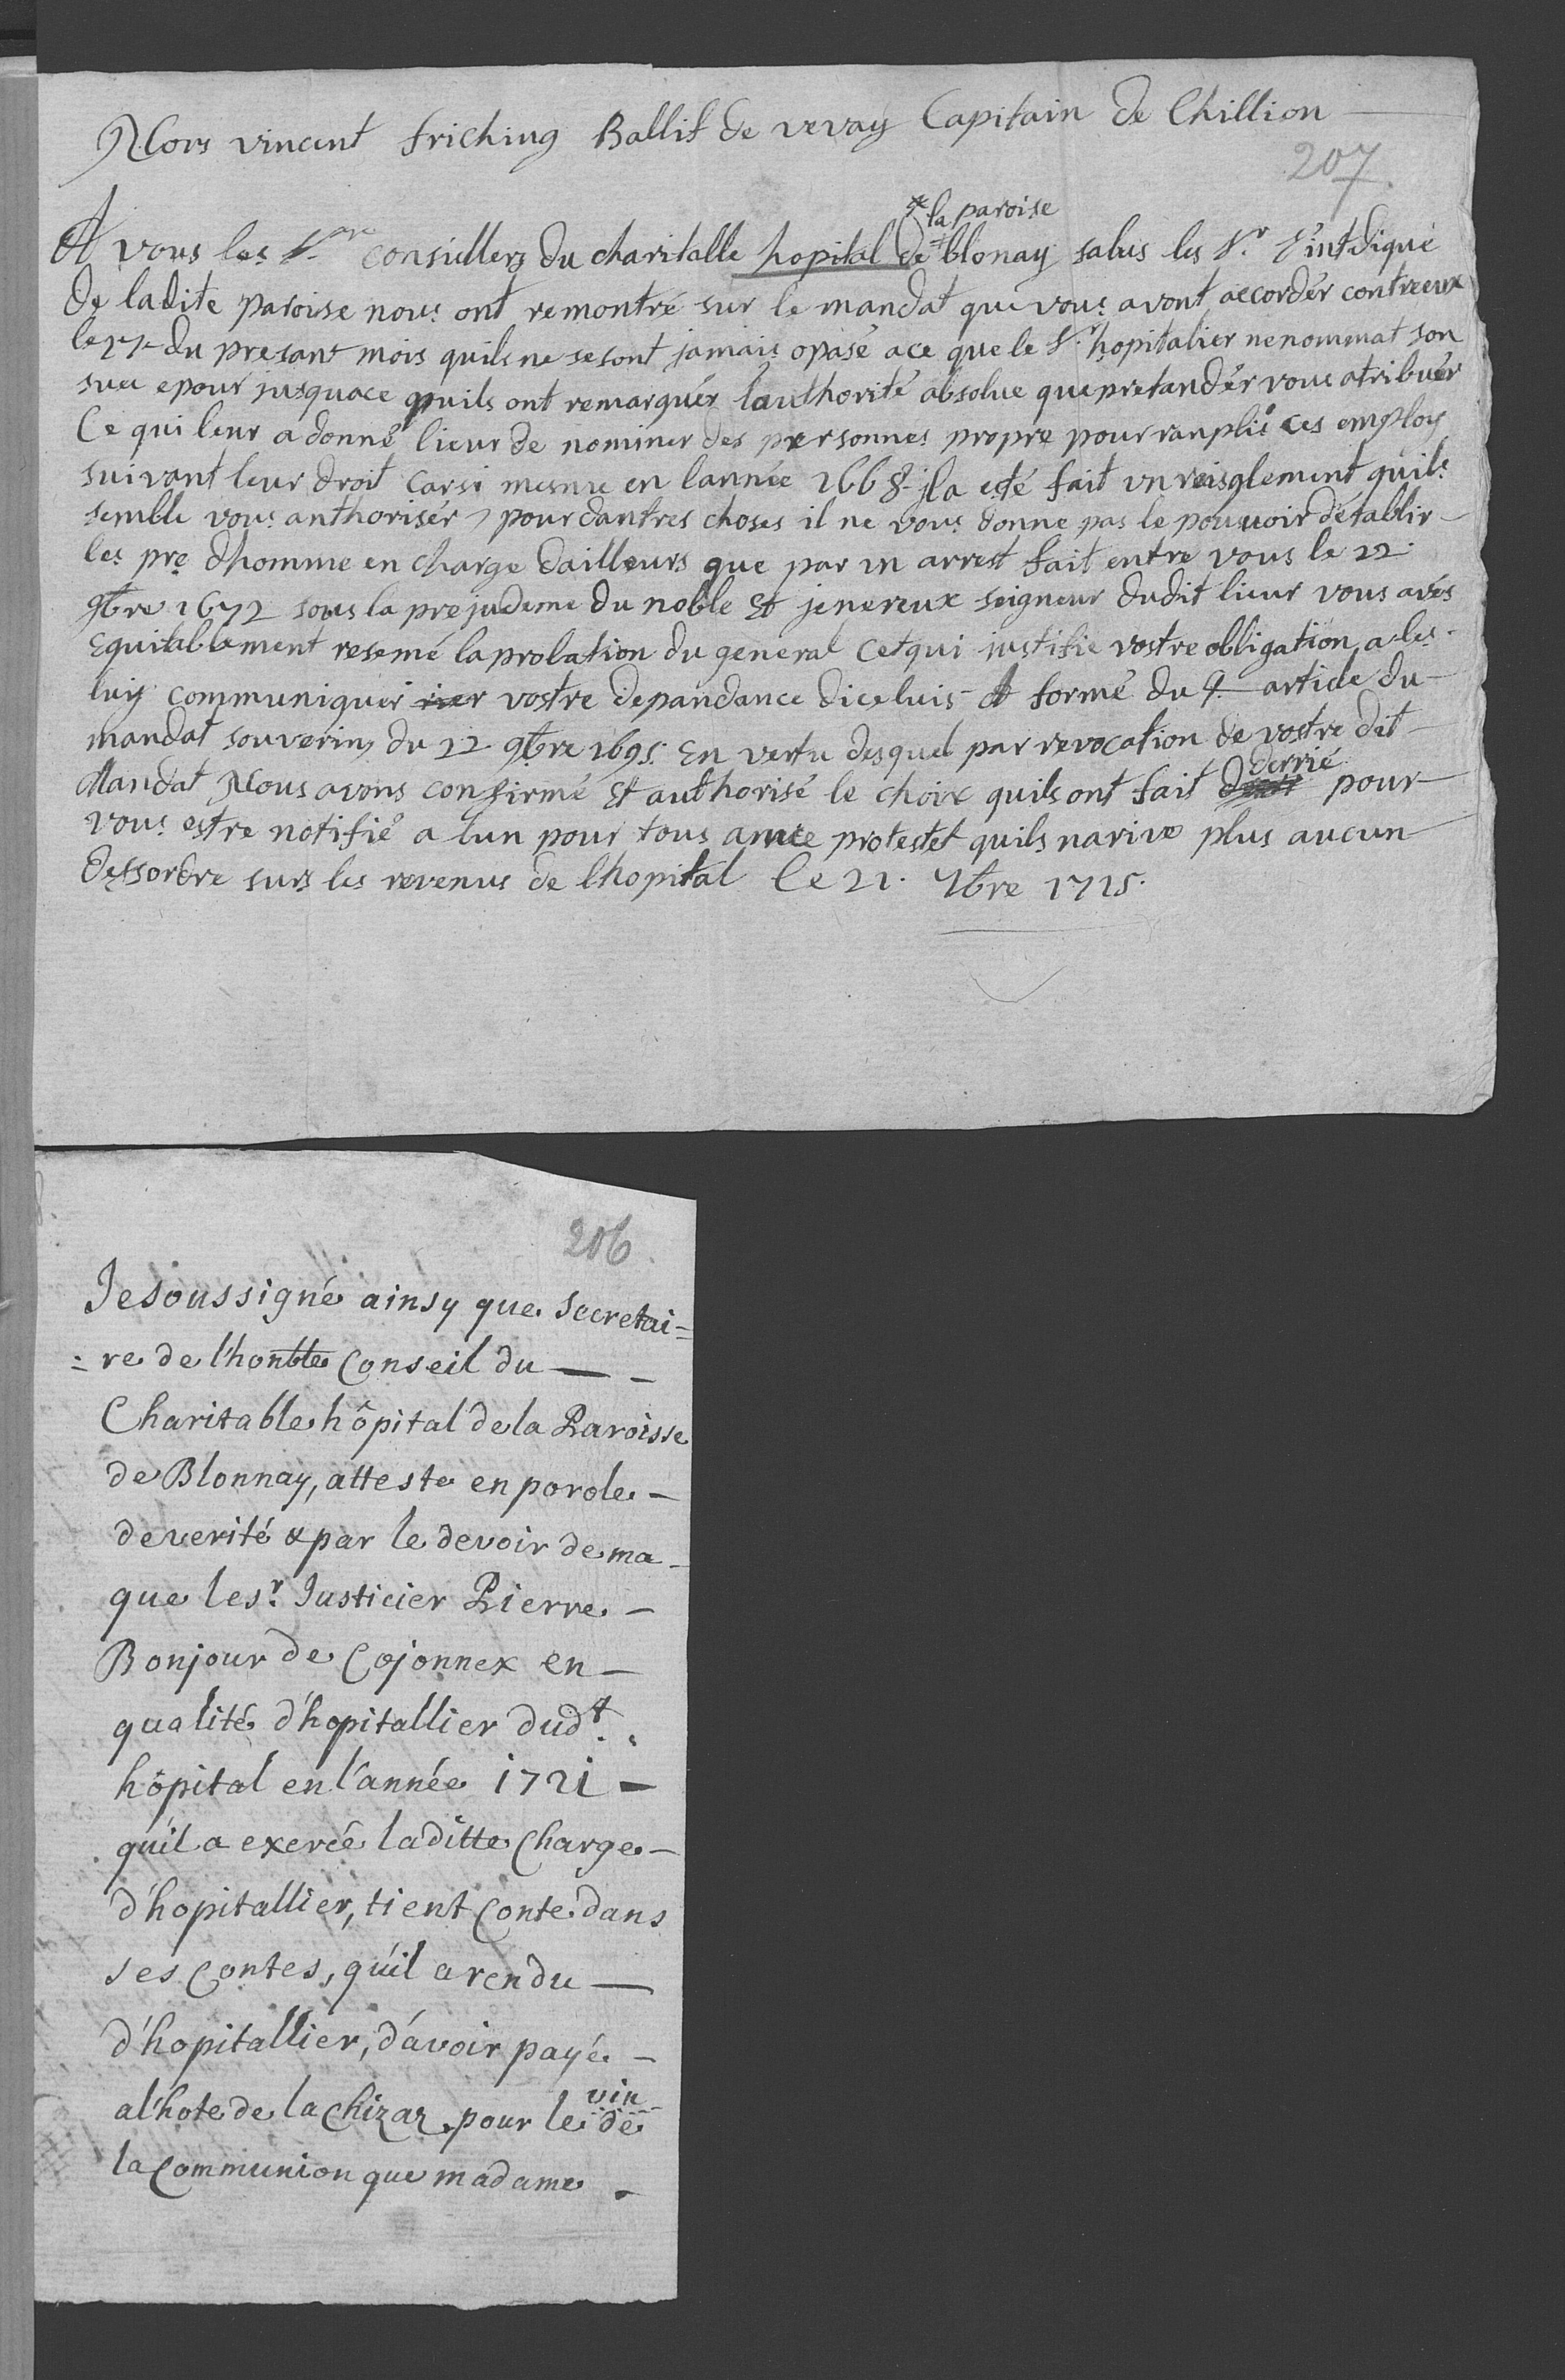 Nous vincent friching Ballif de vevay Capitain de Chillion
207
la paroise
A vous les Srs consiellers du charitalle hopital de blonay salus les Sr. S'intdique
de ladite paroise nous ont remontré sur le mandat que vous avont accordér contreeux
le 17 du presant mois quils ne se sont jamais opasé a ce que le Sr. hopitalier nenommat son
sucu epour jusquace quils ont remarquér lauthorité absolue que pretandér vous atribuér
Ce qui leur a donné lieur de nominer des personnes propre pour ranplir ces employ
suivant leur droit Carsi mesme en lannée 1668 jla esté fait vn reisglement quils
semble vous anthorisér pour dantres choses il ne vous donne pas le pouuoir d'établir
les pre dhomme en charge dailleurs que par vn arrest fait entre vous le 22
9bre 1672 sous la prejudeme du noble Et jenereux seigneur dudit lieur vous avés
Equitablement resemé la prolation du general Cet qui justifie vostre obligation a les
luy communiquér vostre depandance diceluis et formé du 9 article du
mandat souverin du 22 9bre 1695. En vertu desquel par revocation de vostre dit
Mandat Nous avons confirmé Et authorisé le choix quils ont fait derrié pour
vous estre notifié a lun pour tous protestet quils narive plus aucun
dessordre surs les revenus de lhopital Le 21. 7bre 1715.
206
Je soussigné ainsy que Secretai=
=re de l'honble Conseil du
Charitable hôpital de la Paroisse
de Blonnay, atteste en parole
de verité & par le devoir de ma
que le sr. Justicier Pierre
Bonjour de Cojonnex en
qualité d'hopitallier dudt.
hôpital en l'année 1721
qu'il a exercé laditte Charge
d'hopitallier, tient Conte dans
ses Contes, qu'il a rendu
d'hopitallier, d'avoir payé
al'hote de la Chizaz pour le vin de
la Communion que madame